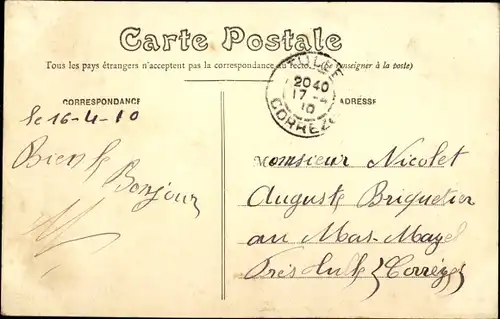 Carte Postale
Tous les pays étrangers n'acceptent pas la correspondance au recto. (Se renseigner à la poste)
CORRESPONDANCE
ADRESSE
TULLE
20 40
17 - 4
10
CORRÈZE
le 16-4-10
Bien le
Bonjour
Monsieur Nicolet
Auguste Briquetier
au Mas-Mazel
Près Tulle (Corrèze)